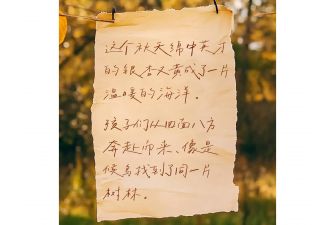 这个秋天绵中英才
的银杏又黄成了一片
温暖的海洋．
孩子们从四面八方
奔赴而来、像是
候鸟找到了同一片
树林．